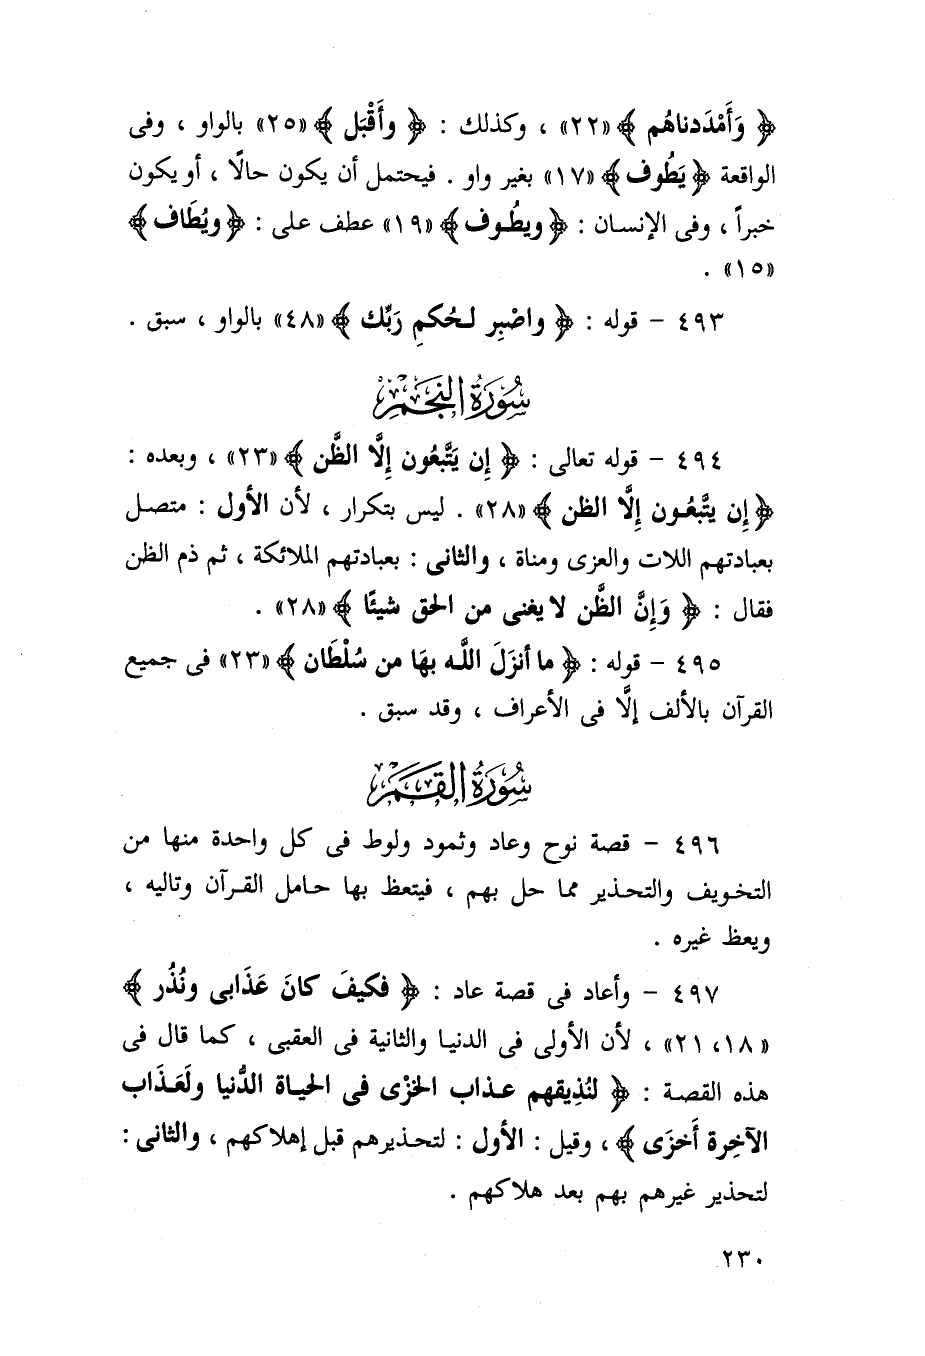 ﴿ وَأَمْدَدناهُم ﴾ «٢٢» ، وكذلك : ﴿ وأَقْبَل ﴾ «٢٥» بالواو ، وفى
الواقعة ﴿ يَطُوف ﴾ «١٧» بغير واو . فيحتمل أن يكون حالًا ، أو يكون
خبراً ، وفى الإنسان : ﴿ ويطُوف ﴾ «١٩» عطف على : ﴿ ويُطَاف ﴾
«١٥» .
٤٩٣ – قوله : ﴿ واصْبِر لحُكمِ رَبِّك ﴾ «٤٨» بالواو ، سبق .
سُورَةُ النجْمِ
٤٩٤ – قوله تعالى : ﴿ إِن يَتَّبعُون إِلَّا الظَّن ﴾ «٢٣» ، وبعده :
﴿ إِن يتَّبعُون إِلَّا الظن ﴾ «٢٨» . ليس بتكرار ، لأن الأول : متصل
بعبادتهم اللات والعزى ومناة ، والثانى : بعبادتهم الملائكة ، ثم ذم الظن
فقال : ﴿ وَإِنَّ الظَّن لا يغنى من الحق شيئًا ﴾ «٢٨» .
٤٩٥ – قوله : ﴿ ما أنزَلَ اللَّه بهَا من سُلْطَان ﴾ «٢٣» فى جميع
القرآن بالألف إلَّا فى الأعراف ، وقد سبق .
سُورَةُ القَمَرِ
٤٩٦ – قصة نوح وعاد وثمود ولوط فى كل واحدة منها من
التخويف والتحذير مما حل بهم ، فيتعظ بها حامل القرآن وتاليه ،
ويعظ غيره .
٤٩٧ – وأعاد فى قصة عاد : ﴿ فكيفَ كانَ عَذَابى ونُذُر ﴾
«١٨، ٢١» ، لأن الأولى فى الدنيا والثانية فى العقبى ، كما قال فى
هذه القصة : ﴿ لنُذِيقهم عذاب الخزْى فى الحياة الدُّنيا ولَعَذَاب
الآخِرة أَخزَى ﴾ ، وقيل : الأول : لتحذيرهم قبل إهلاكهم ، والثانى :
لتحذير غيرهم بهم بعد هلاكهم .
٢٣٠